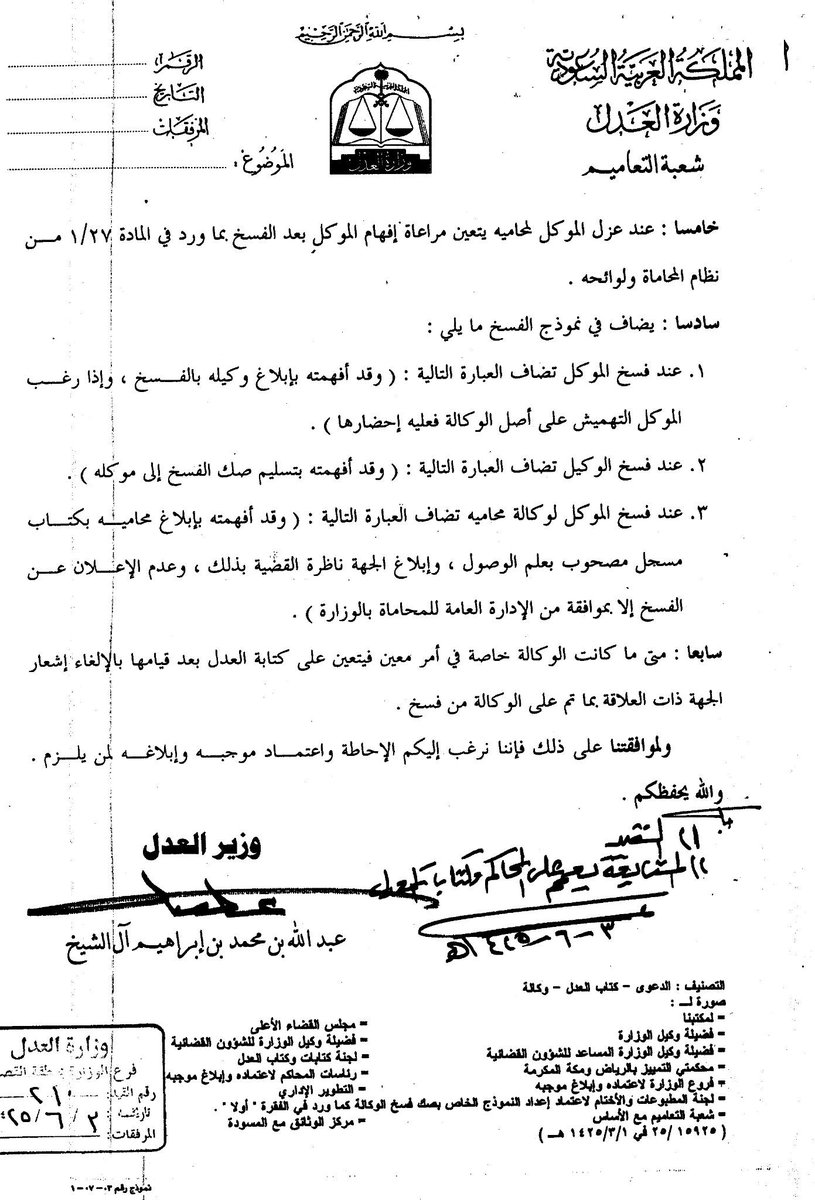 بسم الله الرحمن الرحيم
المملكة العربية السعودية
وزارة العدل
شعبة التعاميم
وزارة العدل
الرقم :
التاريخ :
المرفقات :
الموضوع :
خامسا : عند عزل الموكل لمحاميه يتعين مراعاة إفهام الموكل بعد الفسخ بما ورد في المادة ١/٢٧ مـن
نظام المحاماة ولوائحه .
سادسا : يضاف في نموذج الفسخ ما يلي :
١. عند فسخ الموكل تضاف العبارة التالية : ( وقد أفهمته بإبلاغ وكيله بالفسخ ، وإذا رغب
الموكل التهميش على أصل الوكالة فعليه إحضارها ) .
٢. عند فسخ الوكيل تضاف العبارة التالية : ( وقد أفهمته بتسليم صك الفسخ إلى موكله ) .
٣. عند فسخ الموكل لوكالة محاميه تضاف العبارة التالية : ( وقد أفهمته بإبلاغ محاميه بكتاب
مسجل مصحوب بعلم الوصول ، وإبلاغ الجهة ناظرة القضية بذلك ، وعدم الإعلان عن
الفسخ إلا بموافقة من الإدارة العامة للمحاماة بالوزارة ) .
سابعا : متى ما كانت الوكالة خاصة في أمر معين فيتعين على كتابة العدل بعد قيامها بالإلغاء إشعار
الجهة ذات العلاقة بما تم على الوكالة من فسخ .
ولموافقتنا على ذلك فإننا نرغب إليكم الإحاطة واعتماد موجبه وإبلاغه لمن يلزم .
والله يحفظكم .
وزير العدل
عبد الله بن محمد بن إبراهيم آل الشيخ
٣-٦-١٤٢٥هـ
التصنيف : الدعوى - كتاب العدل - وكالة
صورة لـ :
- لمكتبنا
- فضيلة وكيل الوزارة
- فضيلة وكيل الوزارة المساعد للشؤون القضائية
- محكمتي التمييز بالرياض ومكة المكرمة
+ فروع الوزارة لاعتماده وإبلاغ موجبه
- لجنة المطبوعات والأختام لاعتماد إعداد النموذج الخاص بصك فسخ الوكالة كما ورد في الفقرة " أولا " .
- شعبة التعاميم مع الأساس
( ٢٥/١٥٩٢٥ في ١٤٢٥/٣/١ هـ )
- مجلس القضاء الأعلى
- فضيلة وكيل الوزارة للشؤون القضائية
- لجنة كتابات وكتاب العدل
- رئاسات المحاكم لاعتماده وإبلاغ موجبه
- التطوير الإداري
- مركز الوثائق مع المسودة
وزارة العدل
فرع الوزارة
رقم القيد
تاريخه : ٣ / ٦ /
المرفقات :
نموذج رقم ٠٣-٠٧-١